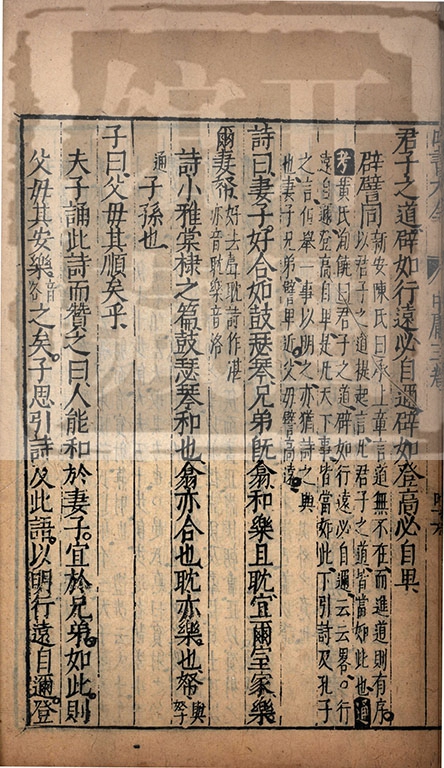 君子之道辟如行遠必自邇辟如登高必自卑
辟譬同
新安陳氏曰承上章言道無不在而進道則有序
以君子之道提起言凡君子之道皆當如此也通
考黄氏洵饒曰君子之道辟如行遠必自邇云云畧○行
遠自邇登高自卑是凡天下事皆當如此下引詩及孔子
之言舉一事以明之亦猶詩之興
也妻子兄弟譬卑近父母譬高遠
詩曰妻子好合如鼓瑟琴兄弟既翕和樂且耽宜爾室家樂
爾妻帑
好去聲耽詩作湛
亦音耽樂音洛
詩小雅棠棣之篇鼓瑟琴和也翕亦合也耽亦樂也帑與孥
通子孫也
子曰父母其順矣乎
夫子誦此詩而贊之曰人能和於妻子宜於兄弟如此則
父母其安樂音洛之矣子思引詩及此語以明行遠自邇登